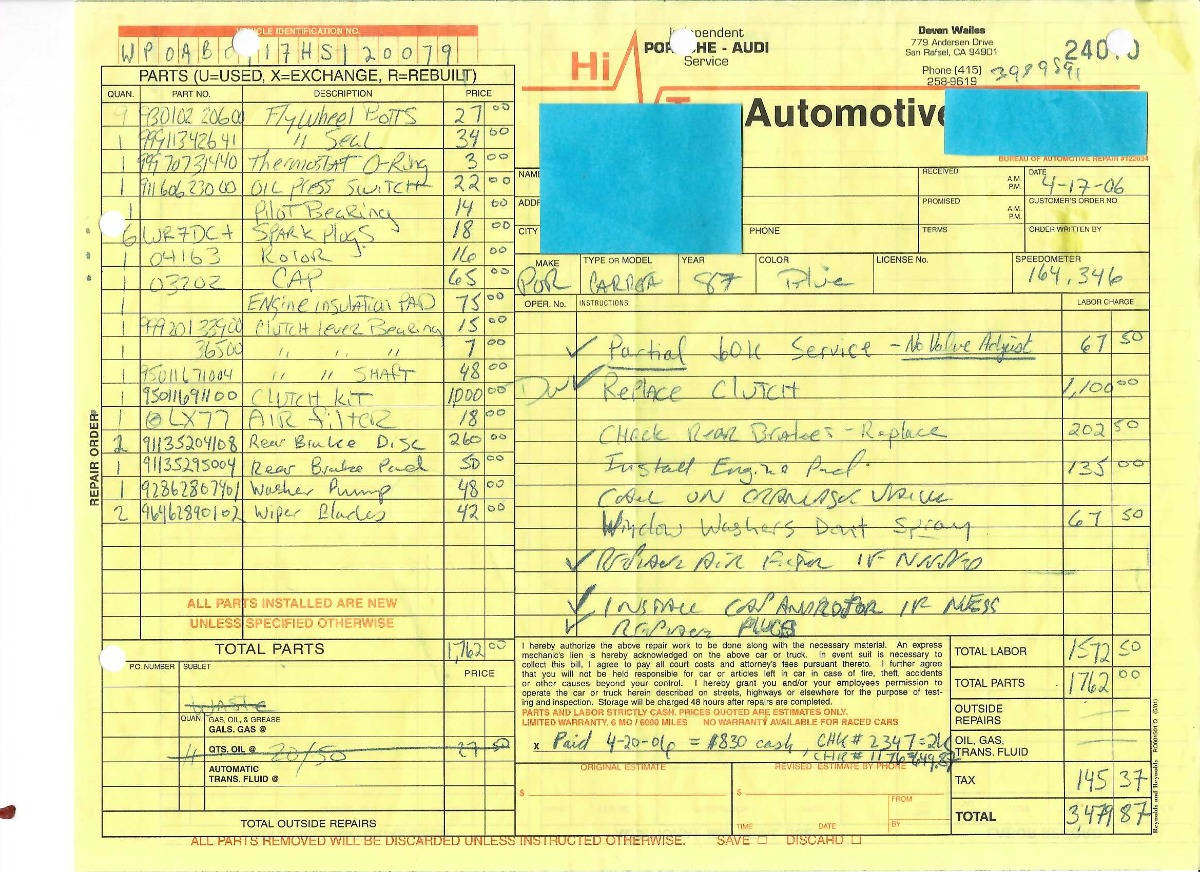 VEHICLE IDENTIFICATION NO.
WP0AB 17HS120079
PARTS (U=USED, X=EXCHANGE, R=REBUILT)
QUAN. PART NO. DESCRIPTION PRICE
9 930102 20600 Flywheel Bolts 27 00
1 99911342641 " Seal 34 00
1 99970731440 Thermostat O-Ring 3 00
1 91160623000 OIL PRESS SWITCH 22 00
1 Pilot Bearing 14 00
6 WR7DC+ SPARK Plugs 18 00
1 04163 ROTOR 16 00
1 03202 CAP 65 00
1 ENGINE insulation PAD 75 00
1 99920133900 Clutch lever Bearing 15 00
1 36500 " " " 7 00
1 95011671004 " " SHAFT 48 00
1 95011691100 CLUTCH KIT 1,000 00
1 LX77 AIR FILTER 18 00
2 91135204108 Rear Brake Disc 260 00
1 91135295004 Rear Brake Pad 50 00
1 92862807901 Washer Pump 48 00
2 96462890102 Wiper Blades 42 00
REPAIR ORDER
ALL PARTS INSTALLED ARE NEW
UNLESS SPECIFIED OTHERWISE
TOTAL PARTS 1,762 00
PO. NUMBER SUBLET PRICE
WASTE
QUAN GAS, OIL, & GREASE
GALS. GAS @
4 QTS. OIL @ 20/50 27 50
AUTOMATIC
TRANS. FLUID @
TOTAL OUTSIDE REPAIRS
Independent
PORSCHE - AUDI
Service
Hi
Automotive
Devon Wailes
779 Andersen Drive
San Rafael, CA 94901
Phone (415)
258-9619
BUREAU OF AUTOMOTIVE REPAIR #122034
NAME
ADDR
CITY
PHONE
RECEIVED A.M. P.M.
DATE 4-17-06
PROMISED A.M. P.M.
CUSTOMER'S ORDER NO.
TERMS
ORDER WRITTEN BY
MAKE POR
TYPE OR MODEL CARRERA
YEAR 87
COLOR Blue
LICENSE No.
SPEEDOMETER 164,346
OPER. No. INSTRUCTIONS LABOR CHARGE
✓ Partial 60K Service - No Valve Adjust 67 50
DW ✓ REPLACE CLUTCH 1,100 00
CHECK REAR BRAKES - Replace 202 50
Install Engine Pad 135 00
Window Washers Dont Spray 67 50
✓ REPLACE AIR FILTER IF NEEDED
✓ INSTALL CAP AND ROTOR IF NESS
✓ REPLACE PLUGS
I hereby authorize the above repair work to be done along with the necessary material. An express
mechanic's lien is hereby acknowledged on the above car or truck. In event suit is necessary to
collect this bill, I agree to pay all court costs and attorney's fees pursuant thereto. I further agree
that you will not be held responsible for car or articles left in car in case of fire, theft, accidents
or other causes beyond your control. I hereby grant you and/or your employees permission to
operate the car or truck herein described on streets, highways or elsewhere for the purpose of test-
ing and inspection. Storage will be charged 48 hours after repairs are completed.
PARTS AND LABOR STRICTLY CASH. PRICES QUOTED ARE ESTIMATES ONLY.
LIMITED WARRANTY, 6 MO / 6000 MILES NO WARRANTY AVAILABLE FOR RACED CARS
x Paid 4-20-06 = $830 cash, CHK # 2347 = 2K
CHK # 1176 = 649.87
ORIGINAL ESTIMATE
REVISED ESTIMATE BY PHONE
$ $
FROM
TIME DATE BY
TOTAL LABOR 1572 50
TOTAL PARTS 1762 00
OUTSIDE
REPAIRS
OIL, GAS,
TRANS. FLUID
TAX 145 37
TOTAL 3,479 87
ALL PARTS REMOVED WILL BE DISCARDED UNLESS INSTRUCTED OTHERWISE. SAVE ☐ DISCARD ☐